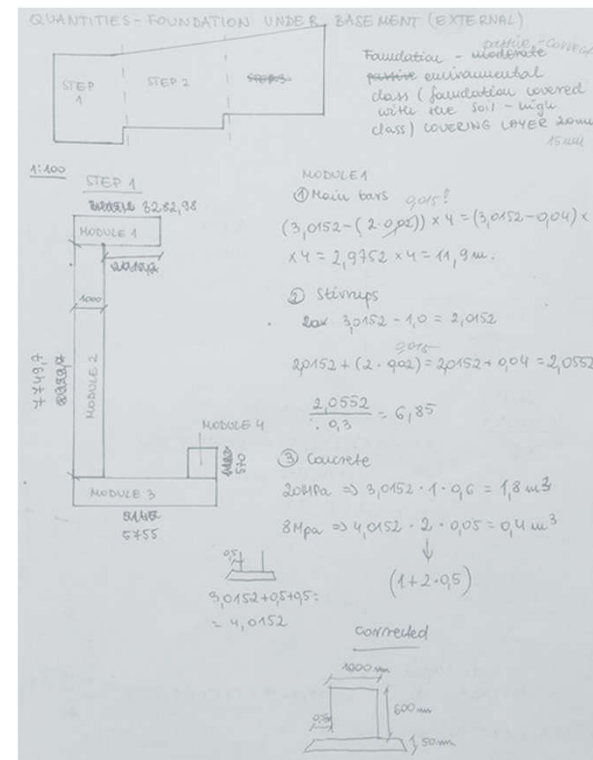 QUANTITIES - FOUNDATION UNDER BASEMENT (EXTERNAL)
passive - correct
Foundation - moderate
passive environmental
class (foundation covered
with the soil - high
class) COVERING LAYER 20mm
15mm
STEP 1
STEP 2
STEP 3
1:100
STEP 1
3282,98
MODULE 1
1000
MODULE 2
7745,7
MODULE 4
570
MODULE 3
5755
MODULE 1
① Main bars
0,015?
(3,0152 - (2 · 0,02)) × 4 = (3,0152 - 0,04) ×
× 4 = 2,9752 × 4 = 11,9 m.
② Stirrups
3,0152 - 1,0 = 2,0152
0,015
2,0152 + (2 · 0,02) = 2,0152 + 0,04 = 2,0552
2,0552
0,3
= 6,85
③ Concrete
20MPa => 3,0152 · 1 · 0,6 = 1,8 m³
8Mpa => 4,0152 · 2 · 0,05 = 0,4 m³
(1+2·0,5)
0,5
3,0152+0,5+0,5=
= 4,0152
corrected
1000 mm
600 mm
50 mm